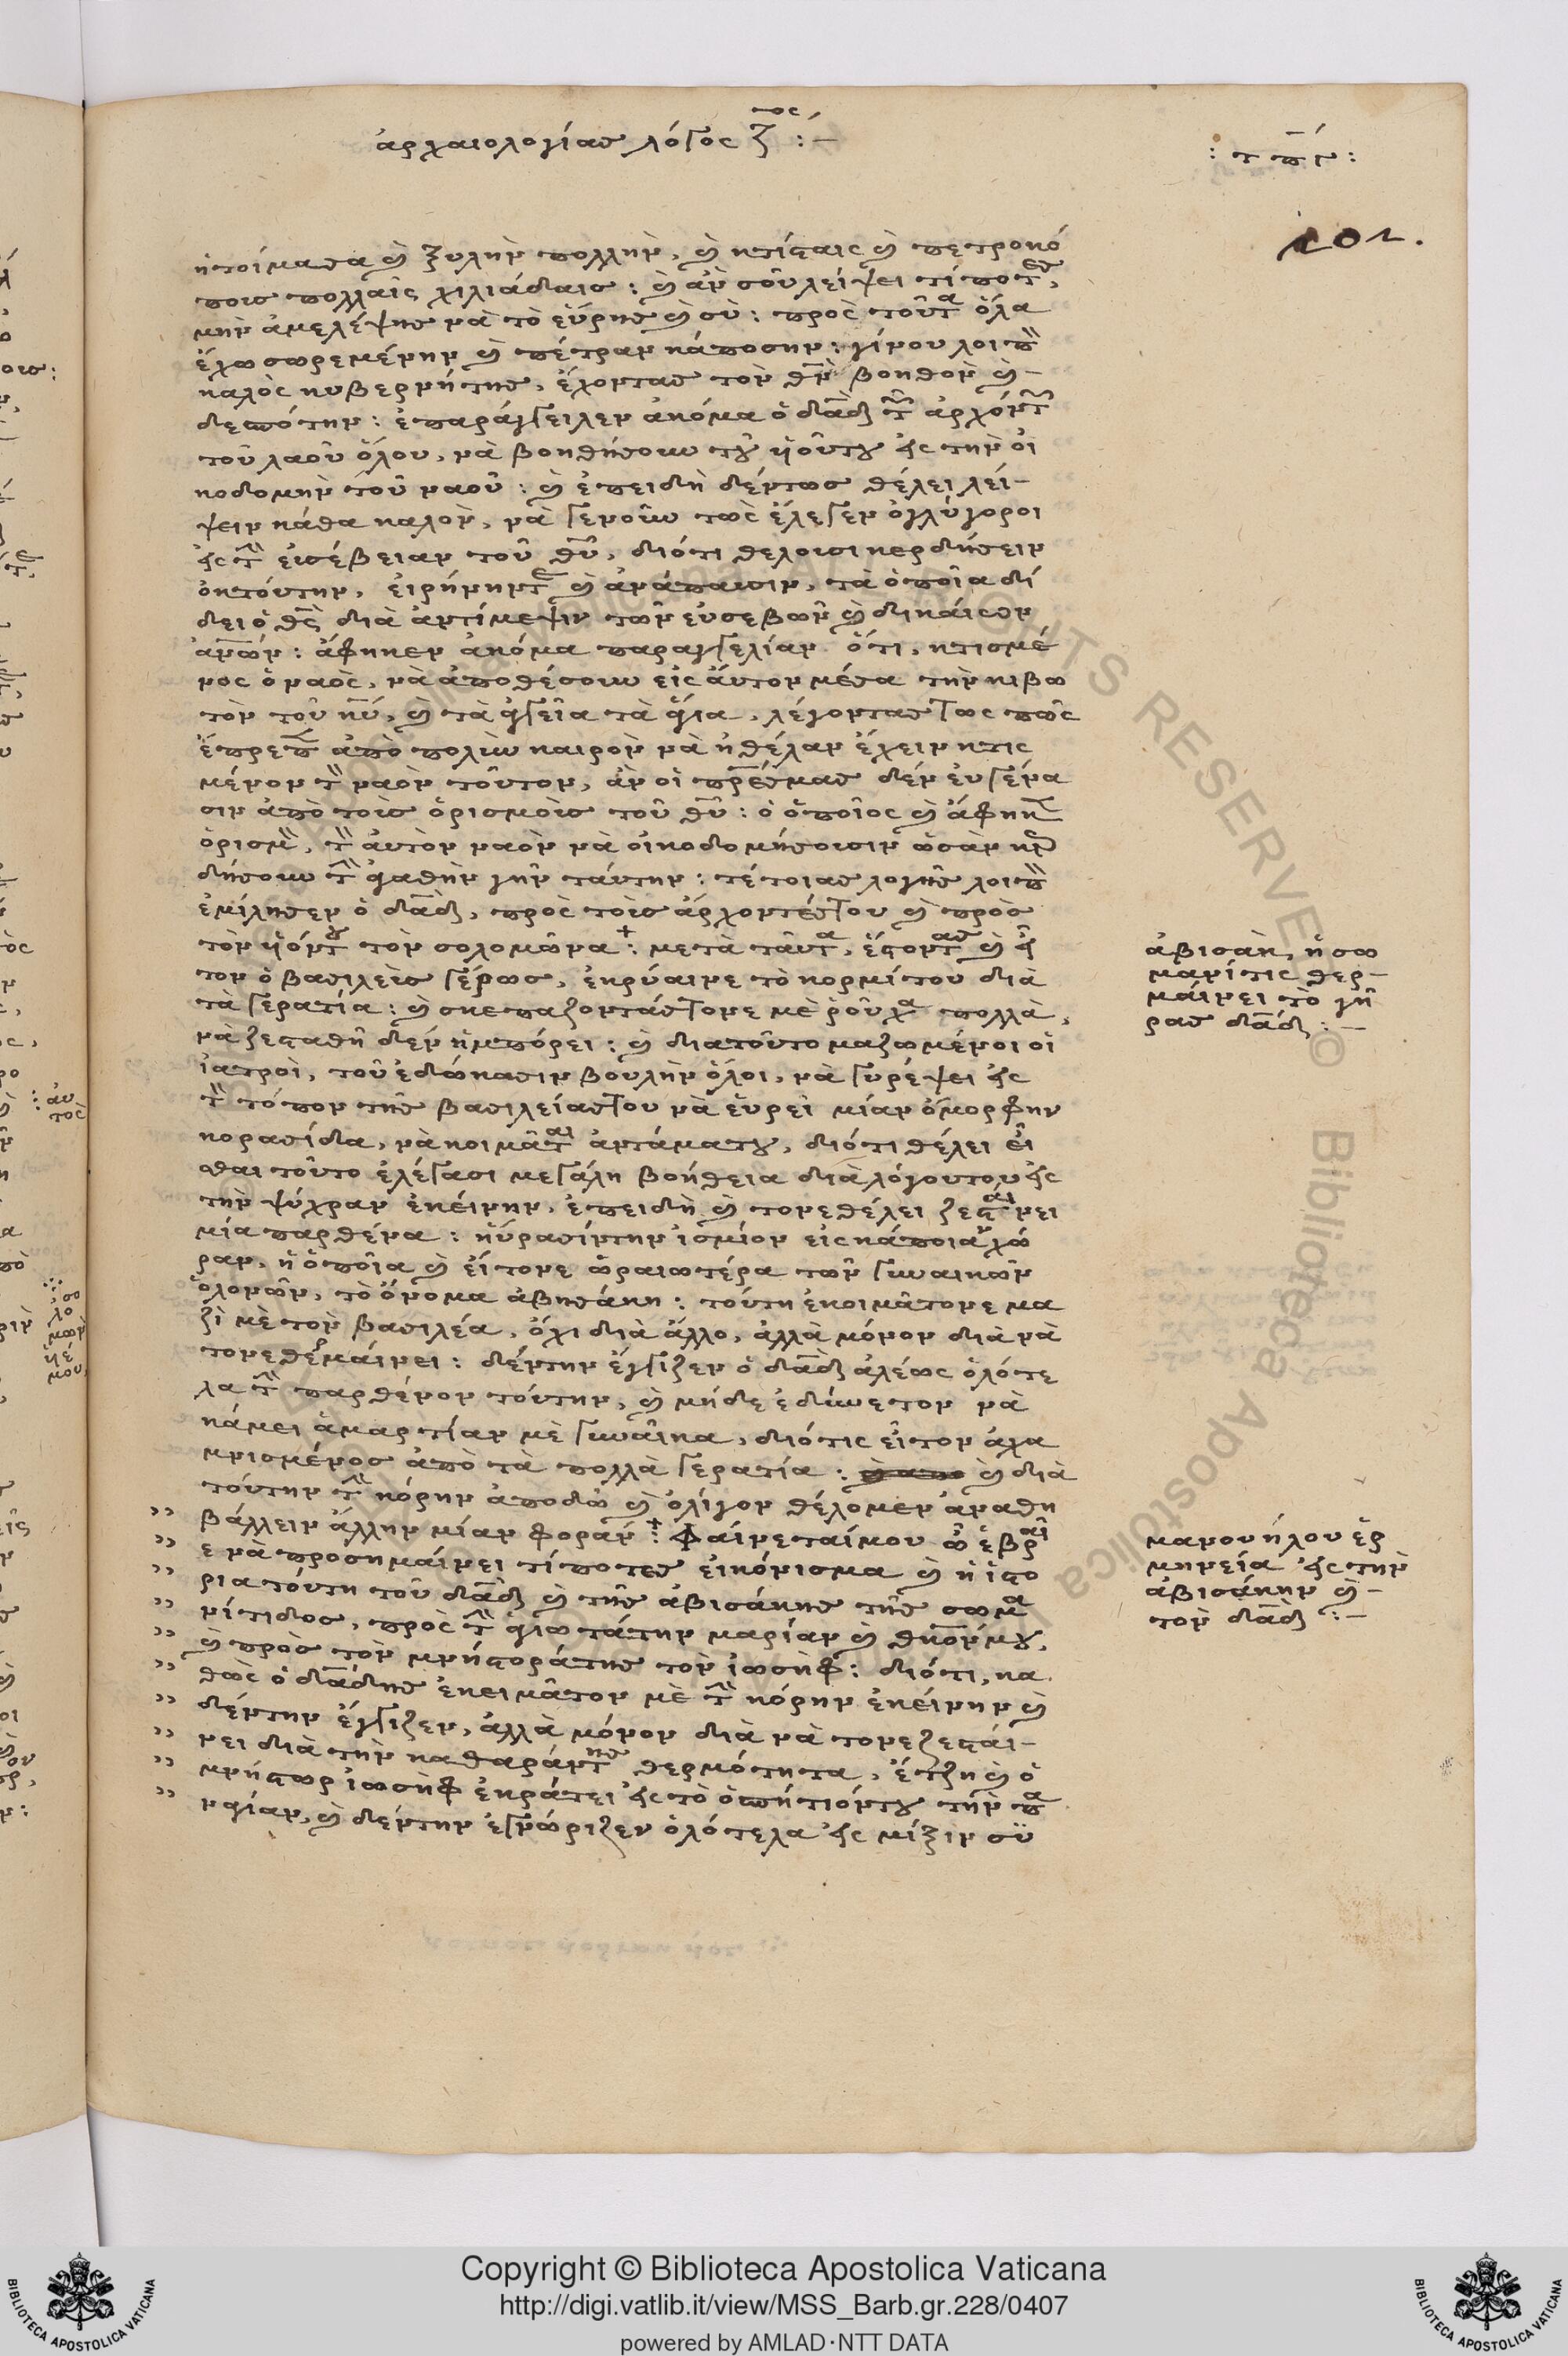 ἀρχαιολογίασ λόγος ζ τος :–
: τ π γ :
201.
ἡτοίμασα ὲ ξυλὴν πολλὴν, ὲ κτίσταις ὲ πετροκό
ποισ πολλαῖς χιλιάδαισ : ὲ ἂν σοῦ λείψει τίποτεσ,
μὴν ἀμελέψησ νὰ τὸ εὕρησ ὲ σὺ : πρὸς τοῦτα ὅλα
ἔχω σωρεμένην ὲ πέτραν κάποσην : γίνου λοιπὸν
καλὸς κυβερνήτησ, ἔχοντασ τὸν θν βοηθὸν ὲ–
δεσπότην : ἐπαράγγειλεν ἀκόμα ὁ δαδ τῶν ἀρχόντων
τοῦ λαοῦ ὅλου, νὰ βοηθήσουν τοῦ ὑιοῦτου εἰς τὴν οἰ
κοδομὴν τοῦ ναοῦ : ὲ ἐπειδὴ δέντωσ θέλει λεί–
ψειν κάθα καλὸν, νὰ γενοῦν τως ἔλεγεν ὀγλύγοροι
εἰς τὴν εὐσέβειαν τοῦ θυ, διότι θελοισι κερδήσειν
ὀκτούτην, εἰρήνηντε ὲ ἀνάπαυσιν, τὰ ὁποῖα δί
δει ὁ θς διὰ ἀντίμεψιν τῶν εὐσεβῶν ὲ δικάιων
ἀνων : ἄφηκεν ἀκόμα παραγγελίαν ὅτι, κτισμέ
νος ὁ ναὸς, νὰ ἀποθέσουν εἰς ἄυτον μέσα τὴν κιβω
τὸν τοῦ κυ, ὲ τὰ ἀγγεῖα τὰ ἅγια, λέγοντασ τως πῶς
ἔπρεπεν ἀπὸ πολὺν καιρὸν νὰ ἠθέλαν ἔχειν κτισ
μένον τὸν ναὸν τοῦτον, ἂν οἱ πρεσμασ δὲν ἐυγένα
σιν ἀπὸ τοὺσ ὁρισμοὺσ τοῦ θυ : ὁ ὁποῖος ὲ ἄφηκεν
ὁρισμὸν, τὸν ἀυτὸν ναὸν νὰ οἰκοδομήσουσιν ὡσὰν κερ
δήσουν τὴν ἀγαθὴν γῆν τάυτην : τέτοιασ λογῆσ λοιπὸν
ἐμίλησεν ὁ δαδ, πρὸς τοὺσ ἄρχοντέστου ὲ πρὸσ
τὸν ὑιόντου τὸν σολομῶνα : μετὰ ταῦτα, ἔστοντασ ὲ εἶ
τον ὁ βασιλεὺσ γέρωσ, ἐκρύαινε τὸ κορμίτου διὰ
τὰ γερατία : ὲ σκεπαζοντάστονε μὲ ῥοῦχα πολλὰ,
νὰ ζεσταθῆ δὲν ἠμπόρει : ὲ διατοῦτο μαζωμένοι οἱ
ἰατροὶ, τοῦ ἐδώκασιν βουλὴν ὅλοι, νὰ γυρέψει εἰς
τὸν τόπον τῆσ βασιλείαστου νὰ εὕρεὶ μίαν ὄμορφην
κορασίδα, νὰ κοιμᾶται ἀντάματου, διότι θέλει εἶ
σθαι τοῦτο ἐλέγασι μεγάλη βοήθεια διὰ λόγουτου εἰς
τὴν ψύχραν ἐκείνην, ἐπειδὴ ὲ τονεθέλει ζεσταίνει
μία παρθένα : ηὕρασίντην ἰσμίον εἰς κάποιαν χώ
ραν, ἡ ὁποῖα ὲ εἴτονε ὡραιωτέρα τῶν γυναικῶν
ὁλονῶν, τὸ ὄνομα ἀβησάκη : τούτη ἐκοιμᾶτονε μα
ζὶ μὲ τὸν βασιλέα, ὄχι διὰ ἄλλο, ἀλλὰ μόνον διὰ νὰ
τονεθερμάινει : δέντην ἔγγιζεν ὁ δαδ ἀλέως ὁλότε
λα τὴν παρθένον τούτην, ὲ μήδε ἐδύνετον νὰ
κάμει ἁμαρτίαν μὲ γυναῖκα, διότις εἶτον ἀχα
μνισμένοσ ἀπὸ τα πολλὰ γερατία : ὲ διὰ
τούτην τὴν κόρην ἀποδῶ ὲ ὀλίγον θέλομεν ἀναθη
βάλλειν ἄλλην μίαν φορὰν : φαίνεταίμου ὦ ἑβραῖ
ε νὰ προσημάινει τίποτεσ εἰκόνισμα ὲ ἡ ἱστο
ρια τούτη τοῦ δαδ ὲ τῆσ ἀβισάκησ τῆσ σωμα
νίτιδοσ, πρὸς τὴν ἁγιωτάτην μαρίαν ὲ θκονμου,
ὲ πρὸσ τὸν μνήστοράτησ τὸν ἰωσὴφ : διότι, κα
θὼς ὁ δαδησ ἐκειμᾶτον μὲ τὴν κόρην ἐκείνην ὲ
δέντην ἔγγιζεν, ἀλλὰ μόνον διὰ νὰ τονεζεστάι–
νει διὰ τὴν καθαράντησ θερμότητα, ἔτζη ὲ ὁ
μνήστωρ ἰωσὴφ ἐκράτει εἰς τὸ ὁσπήτιόντου τὴν πα
ναγίαν, ὲ δέντην ἐγνώριζεν ὁλότελα εἰς μίξιν συ
ἀβισὰκ, ἡ σω
μανίτις θερ–
μάινει τὸ γῆ
ρασ δαδ :–
μανουήλου ἑρ
μηνεία εἰς τὴν
ἀβισάκην ὲ–
τὸν δαδ :–
Copyright © Biblioteca Apostolica Vaticana
http://digi.vatlib.it/view/MSS_Barb.gr.228/0407
powered by AMLAD·NTT DATA